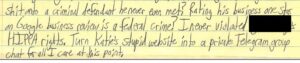 shit onto a criminal defendant he never even met? Rating his business one star
on Google business review is a federal crime? I never violated
HIPPA rights. Turn Katie's stupid website into a private Telegram group
chat for all I care at this point.